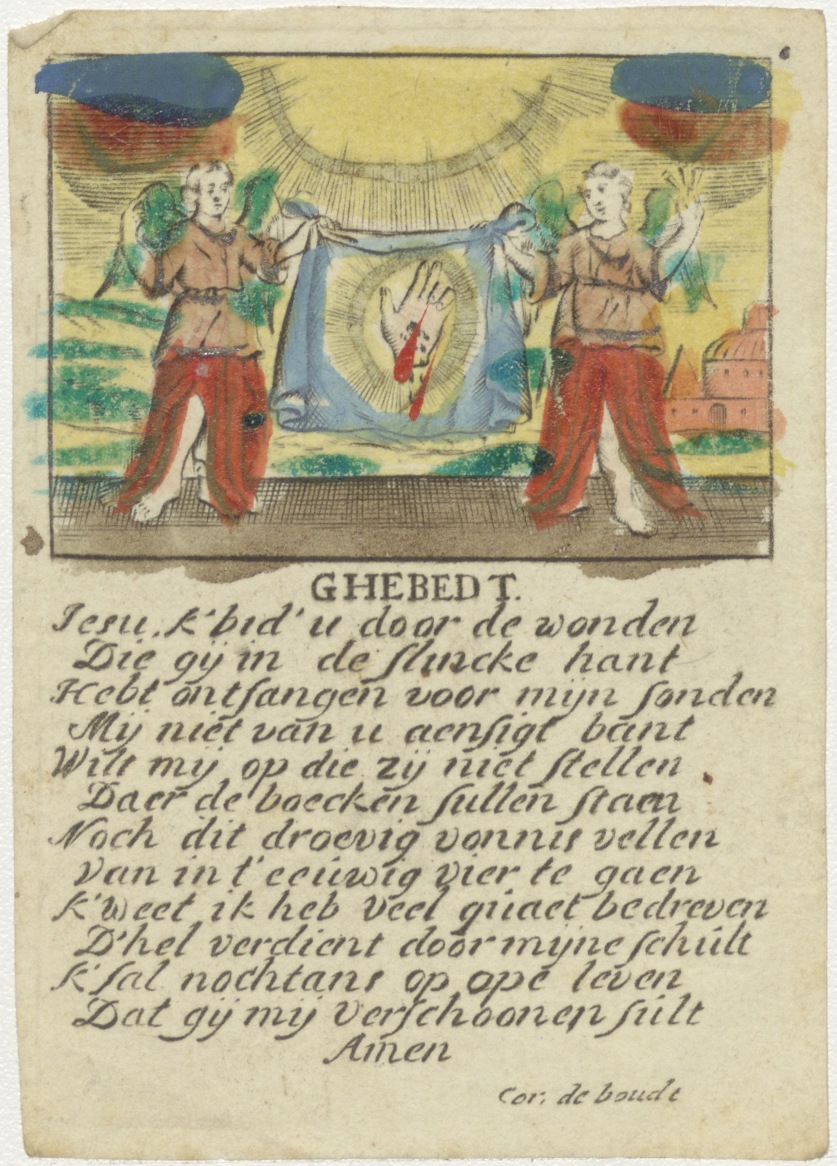 6
GHEBEDT.
Jesu, k'bid' u door de wonden
Die gij in de slincke hant
Hebt ontfangen voor mijn sonden
Mij niet van u aensigt bant
Wilt mij op die zij niet stellen
Daer de boecken sullen staen
Noch dit droevig vonnis vellen
Van in t'eeuwig vier te gaen
K'weet ik heb veel quaet bedreven
D'hel verdient door mijne schult
K'sal nochtans op opē leven
Dat gij mij verschoonen sult
Amen
Cor: de boudt